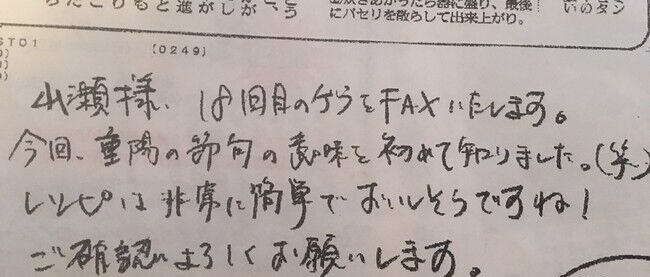 炊きあがったら器に盛り、最後
にパセリを散らして出来上がり。
いのタン
ST01
(0249)
山瀬様、18回目のゲラをFAXいたします。
今回、重陽の節句の意味を初めて知りました。(笑)
レシピは非常に簡単でおいしそうですね!
ご確認よろしくお願いします。